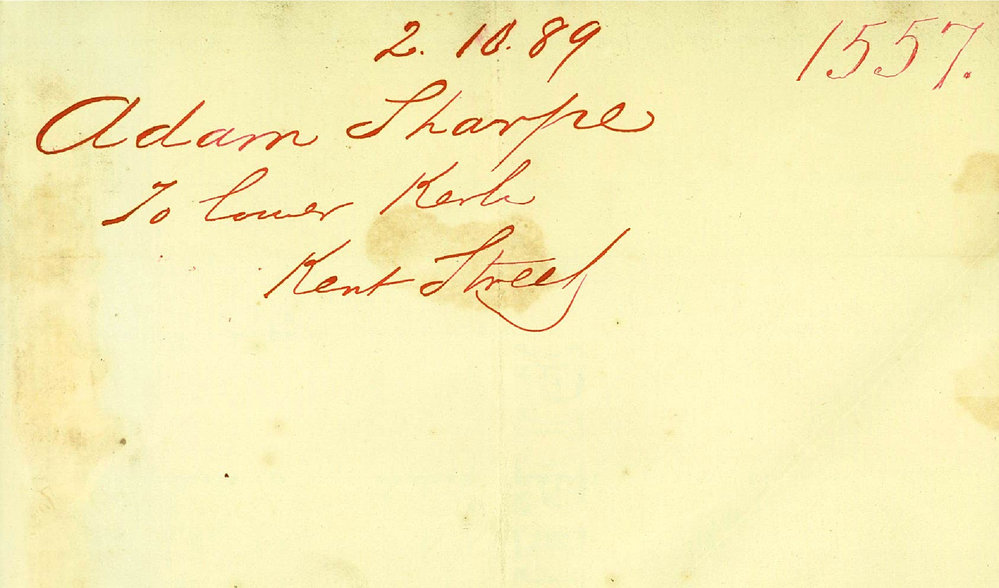 2. 10. 89 1557.
Adam Sharpe
To lower Kerb
Kent Street